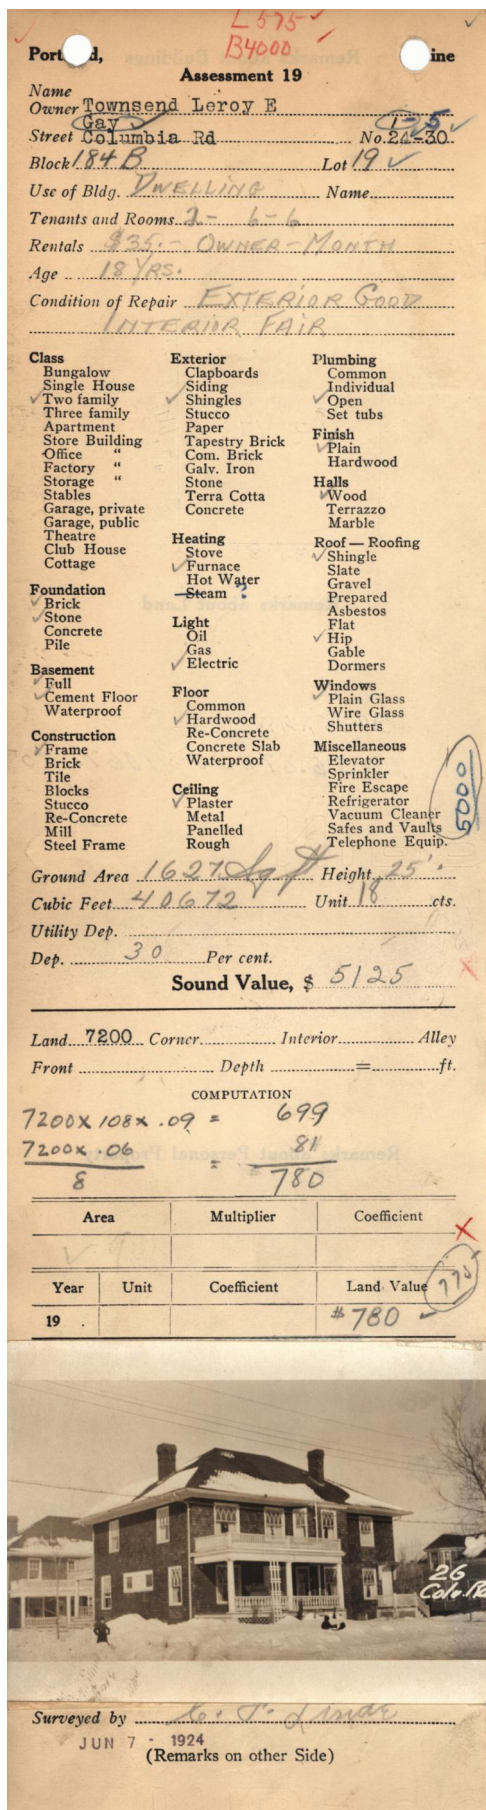 L 575
B4000
Portland, Maine
Assessment 19
Name
Owner Townsend Leroy E
Gay 1-5
Street Columbia Rd No. 24-30
Block 184 B Lot 19
Use of Bldg. DWELLING Name
Tenants and Rooms 2- 6-6
Rentals $35.- OWNER-MONTH
Age 18 YRS.
Condition of Repair EXTERIOR GOOD
INTERIOR FAIR
Class
Bungalow
Single House
Two family
Three family
Apartment
Store Building
Office "
Factory "
Storage "
Stables
Garage, private
Garage, public
Theatre
Club House
Cottage
Foundation
Brick
Stone
Concrete
Pile
Basement
Full
Cement Floor
Waterproof
Construction
Frame
Brick
Tile
Blocks
Stucco
Re-Concrete
Mill
Steel Frame
Exterior
Clapboards
Siding
Shingles
Stucco
Paper
Tapestry Brick
Com. Brick
Galv. Iron
Stone
Terra Cotta
Concrete
Heating
Stove
Furnace
Hot Water
Steam ?
Light
Oil
Gas
Electric
Floor
Common
Hardwood
Re-Concrete
Concrete Slab
Waterproof
Ceiling
Plaster
Metal
Panelled
Rough
Plumbing
Common
Individual
Open
Set tubs
Finish
Plain
Hardwood
Halls
Wood
Terrazzo
Marble
Roof — Roofing
Shingle
Slate
Gravel
Prepared
Asbestos
Flat
Hip
Gable
Dormers
Windows
Plain Glass
Wire Glass
Shutters
Miscellaneous
Elevator
Sprinkler
Fire Escape
Refrigerator
Vacuum Cleaner
Safes and Vaults
Telephone Equip.
5000
Ground Area 1627 Sq ft Height 25'
Cubic Feet 40672 Unit 18 cts.
Utility Dep.
Dep. 30 Per cent.
Sound Value, $ 5125
Land 7200 Corner Interior Alley
Front Depth = ft.
COMPUTATION
7200 x 108 x .09 = 699
7200 x .06 81
8 = 780
Area Multiplier Coefficient
Year Unit Coefficient Land Value 775
19 . $780
26
Colo. Rd
Surveyed by
JUN 7 - 1924
(Remarks on other Side)